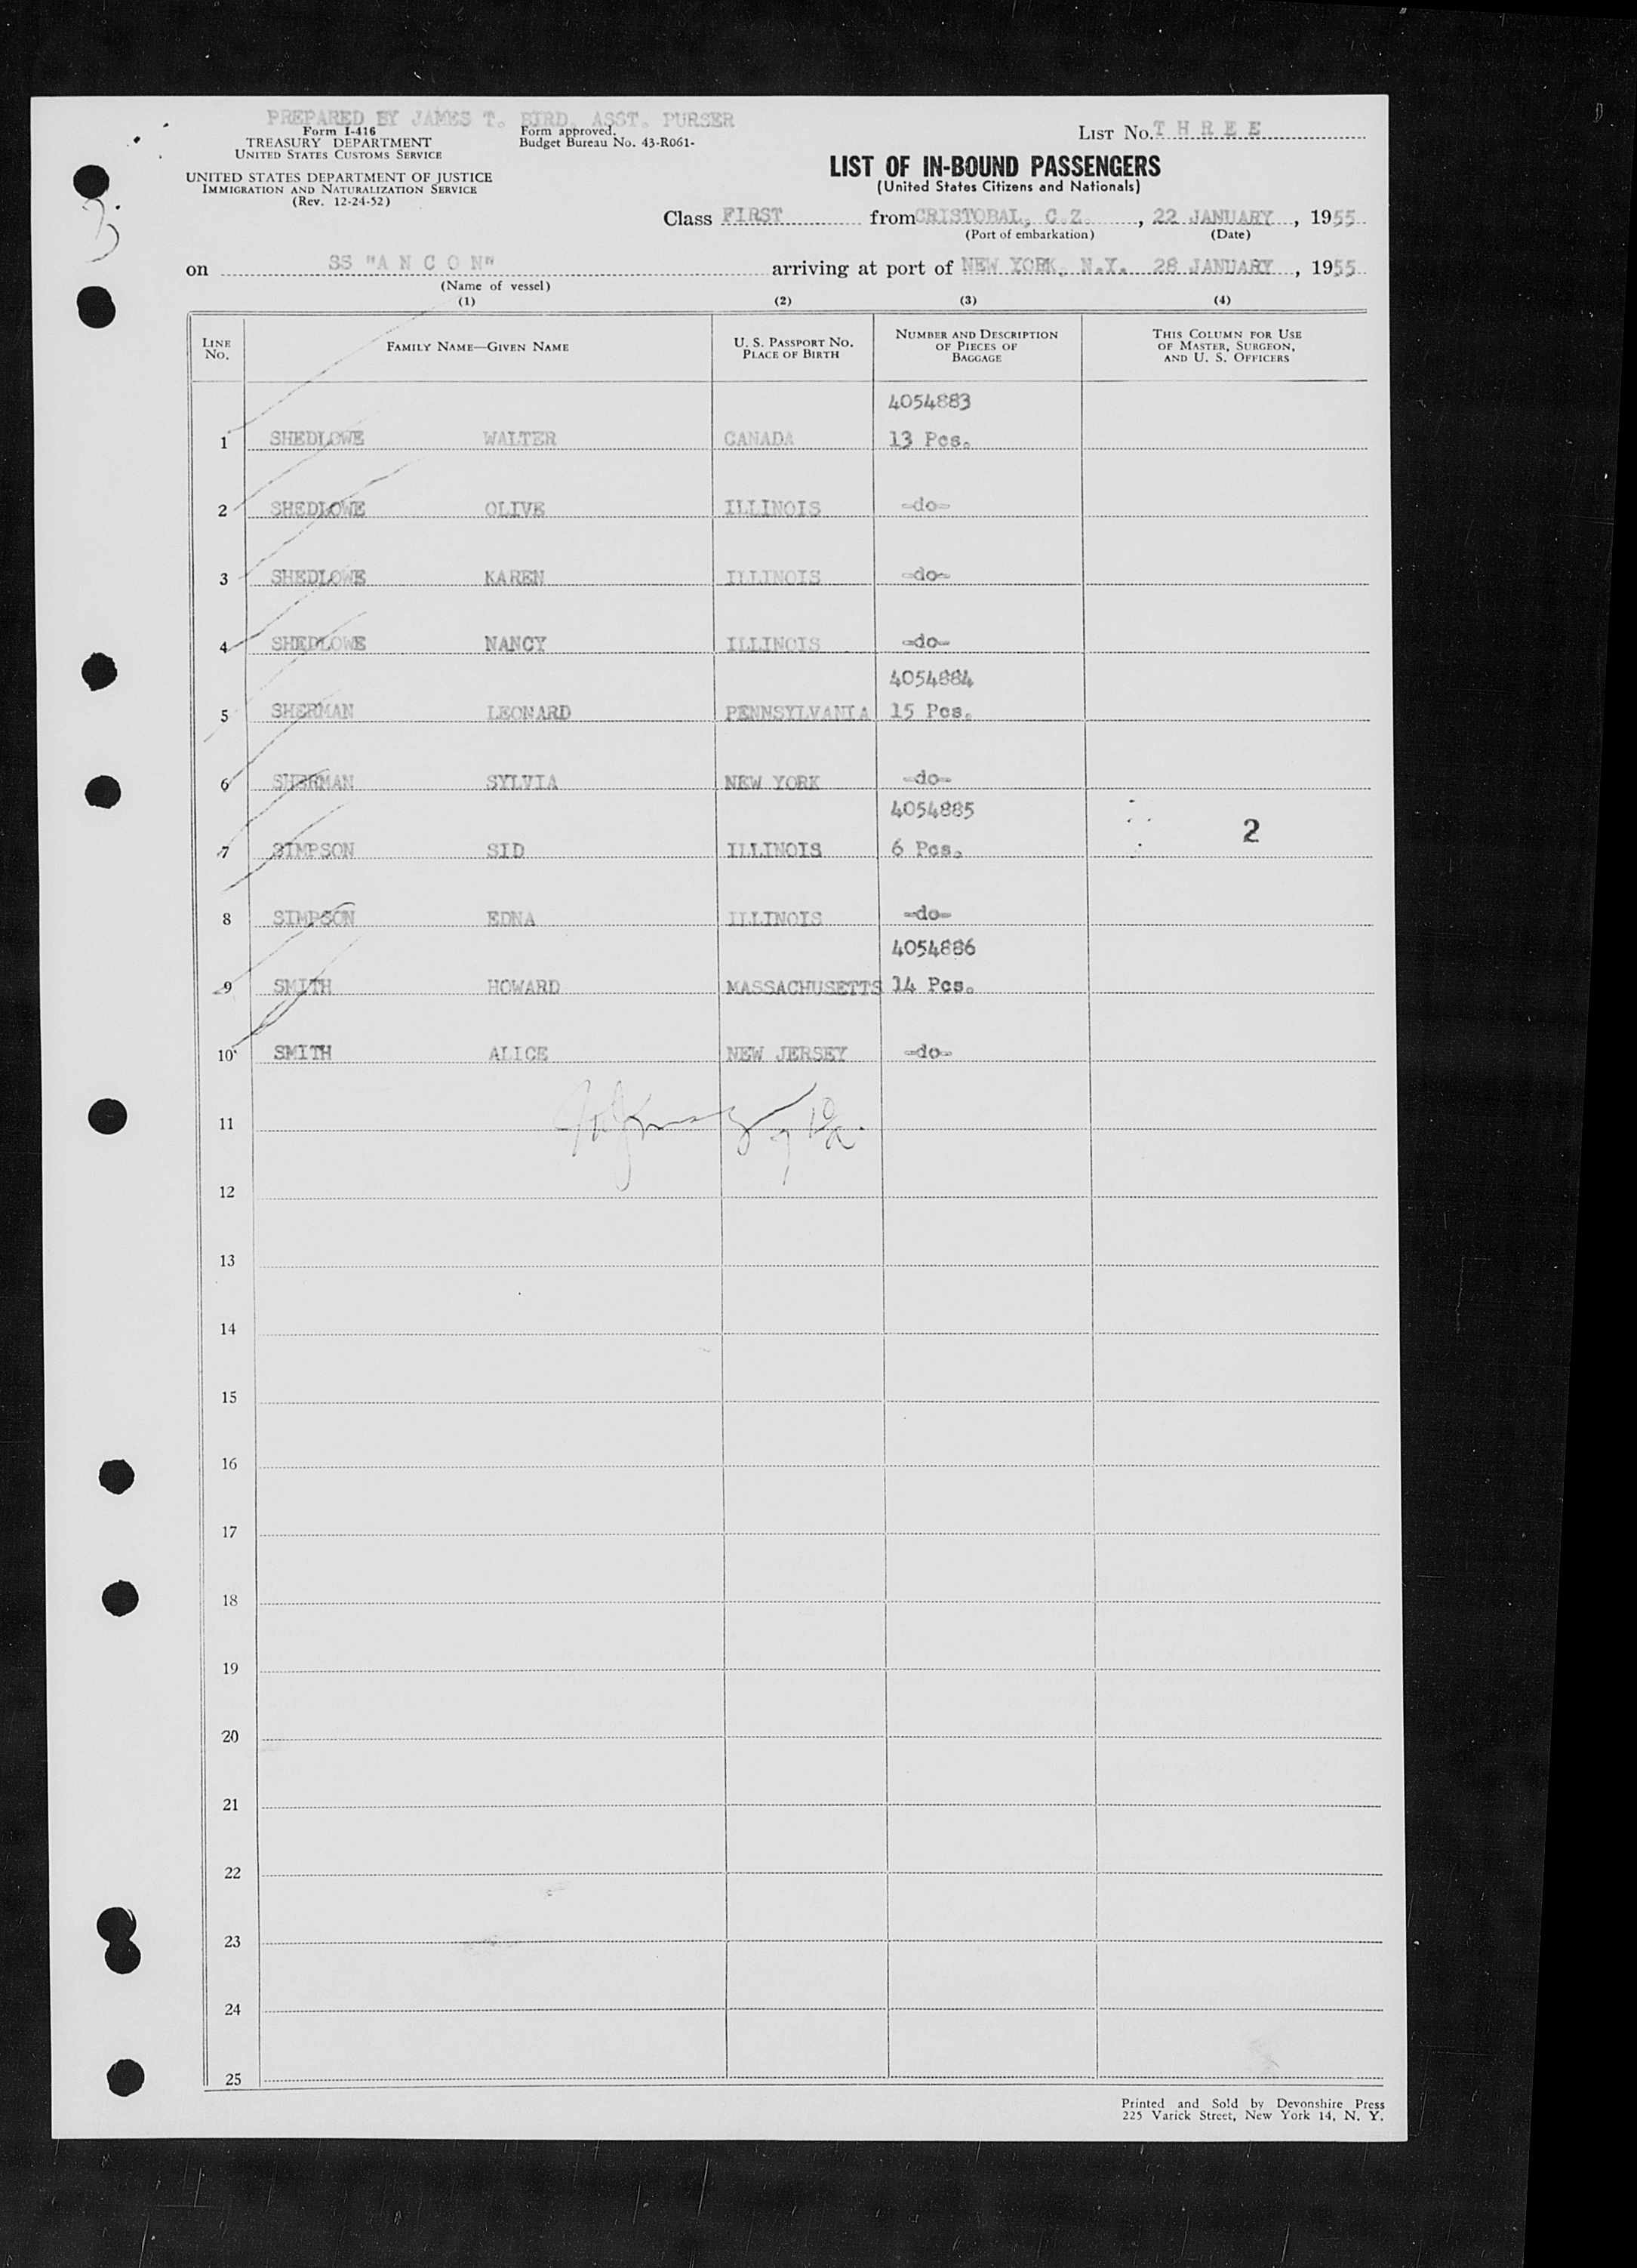 PREPARED BY JAMES T. BIRD, ASST. PURSER
Form I-416
TREASURY DEPARTMENT
UNITED STATES CUSTOMS SERVICE
Form approved.
Budget Bureau No. 43-R061-
LIST No. T H R E E
UNITED STATES DEPARTMENT OF JUSTICE
IMMIGRATION AND NATURALIZATION SERVICE
(Rev. 12-24-52)
LIST OF IN-BOUND PASSENGERS
(United States Citizens and Nationals)
Class FIRST from CRISTOBAL, C.Z. , 22 JANUARY , 1955
(Port of embarkation) (Date)
on SS "A N C O N" arriving at port of NEW YORK, N.Y. 28 JANUARY , 1955
(Name of vessel)
(1) (2) (3) (4)
LINE No. FAMILY NAME—GIVEN NAME U. S. PASSPORT No. PLACE OF BIRTH NUMBER AND DESCRIPTION OF PIECES OF BAGGAGE THIS COLUMN FOR USE OF MASTER, SURGEON, AND U. S. OFFICERS
4054883
1 SHEDLOWE WALTER CANADA 13 Pcs.
2 SHEDLOWE OLIVE ILLINOIS -do-
3 SHEDLOWE KAREN ILLINOIS -do-
4 SHEDLOWE NANCY ILLINOIS -do-
4054884
5 SHERMAN LEONARD PENNSYLVANIA 15 Pcs.
6 SHERMAN SYLVIA NEW YORK -do-
4054885
2
7 SIMPSON SID ILLINOIS 6 Pcs.
8 SIMPSON EDNA ILLINOIS -do-
4054886
9 SMITH HOWARD MASSACHUSETTS 14 Pcs.
10 SMITH ALICE NEW JERSEY -do-
11
12
13
14
15
16
17
18
19
20
21
22
23
24
25
Printed and Sold by Devonshire Press
225 Varick Street, New York 14, N. Y.